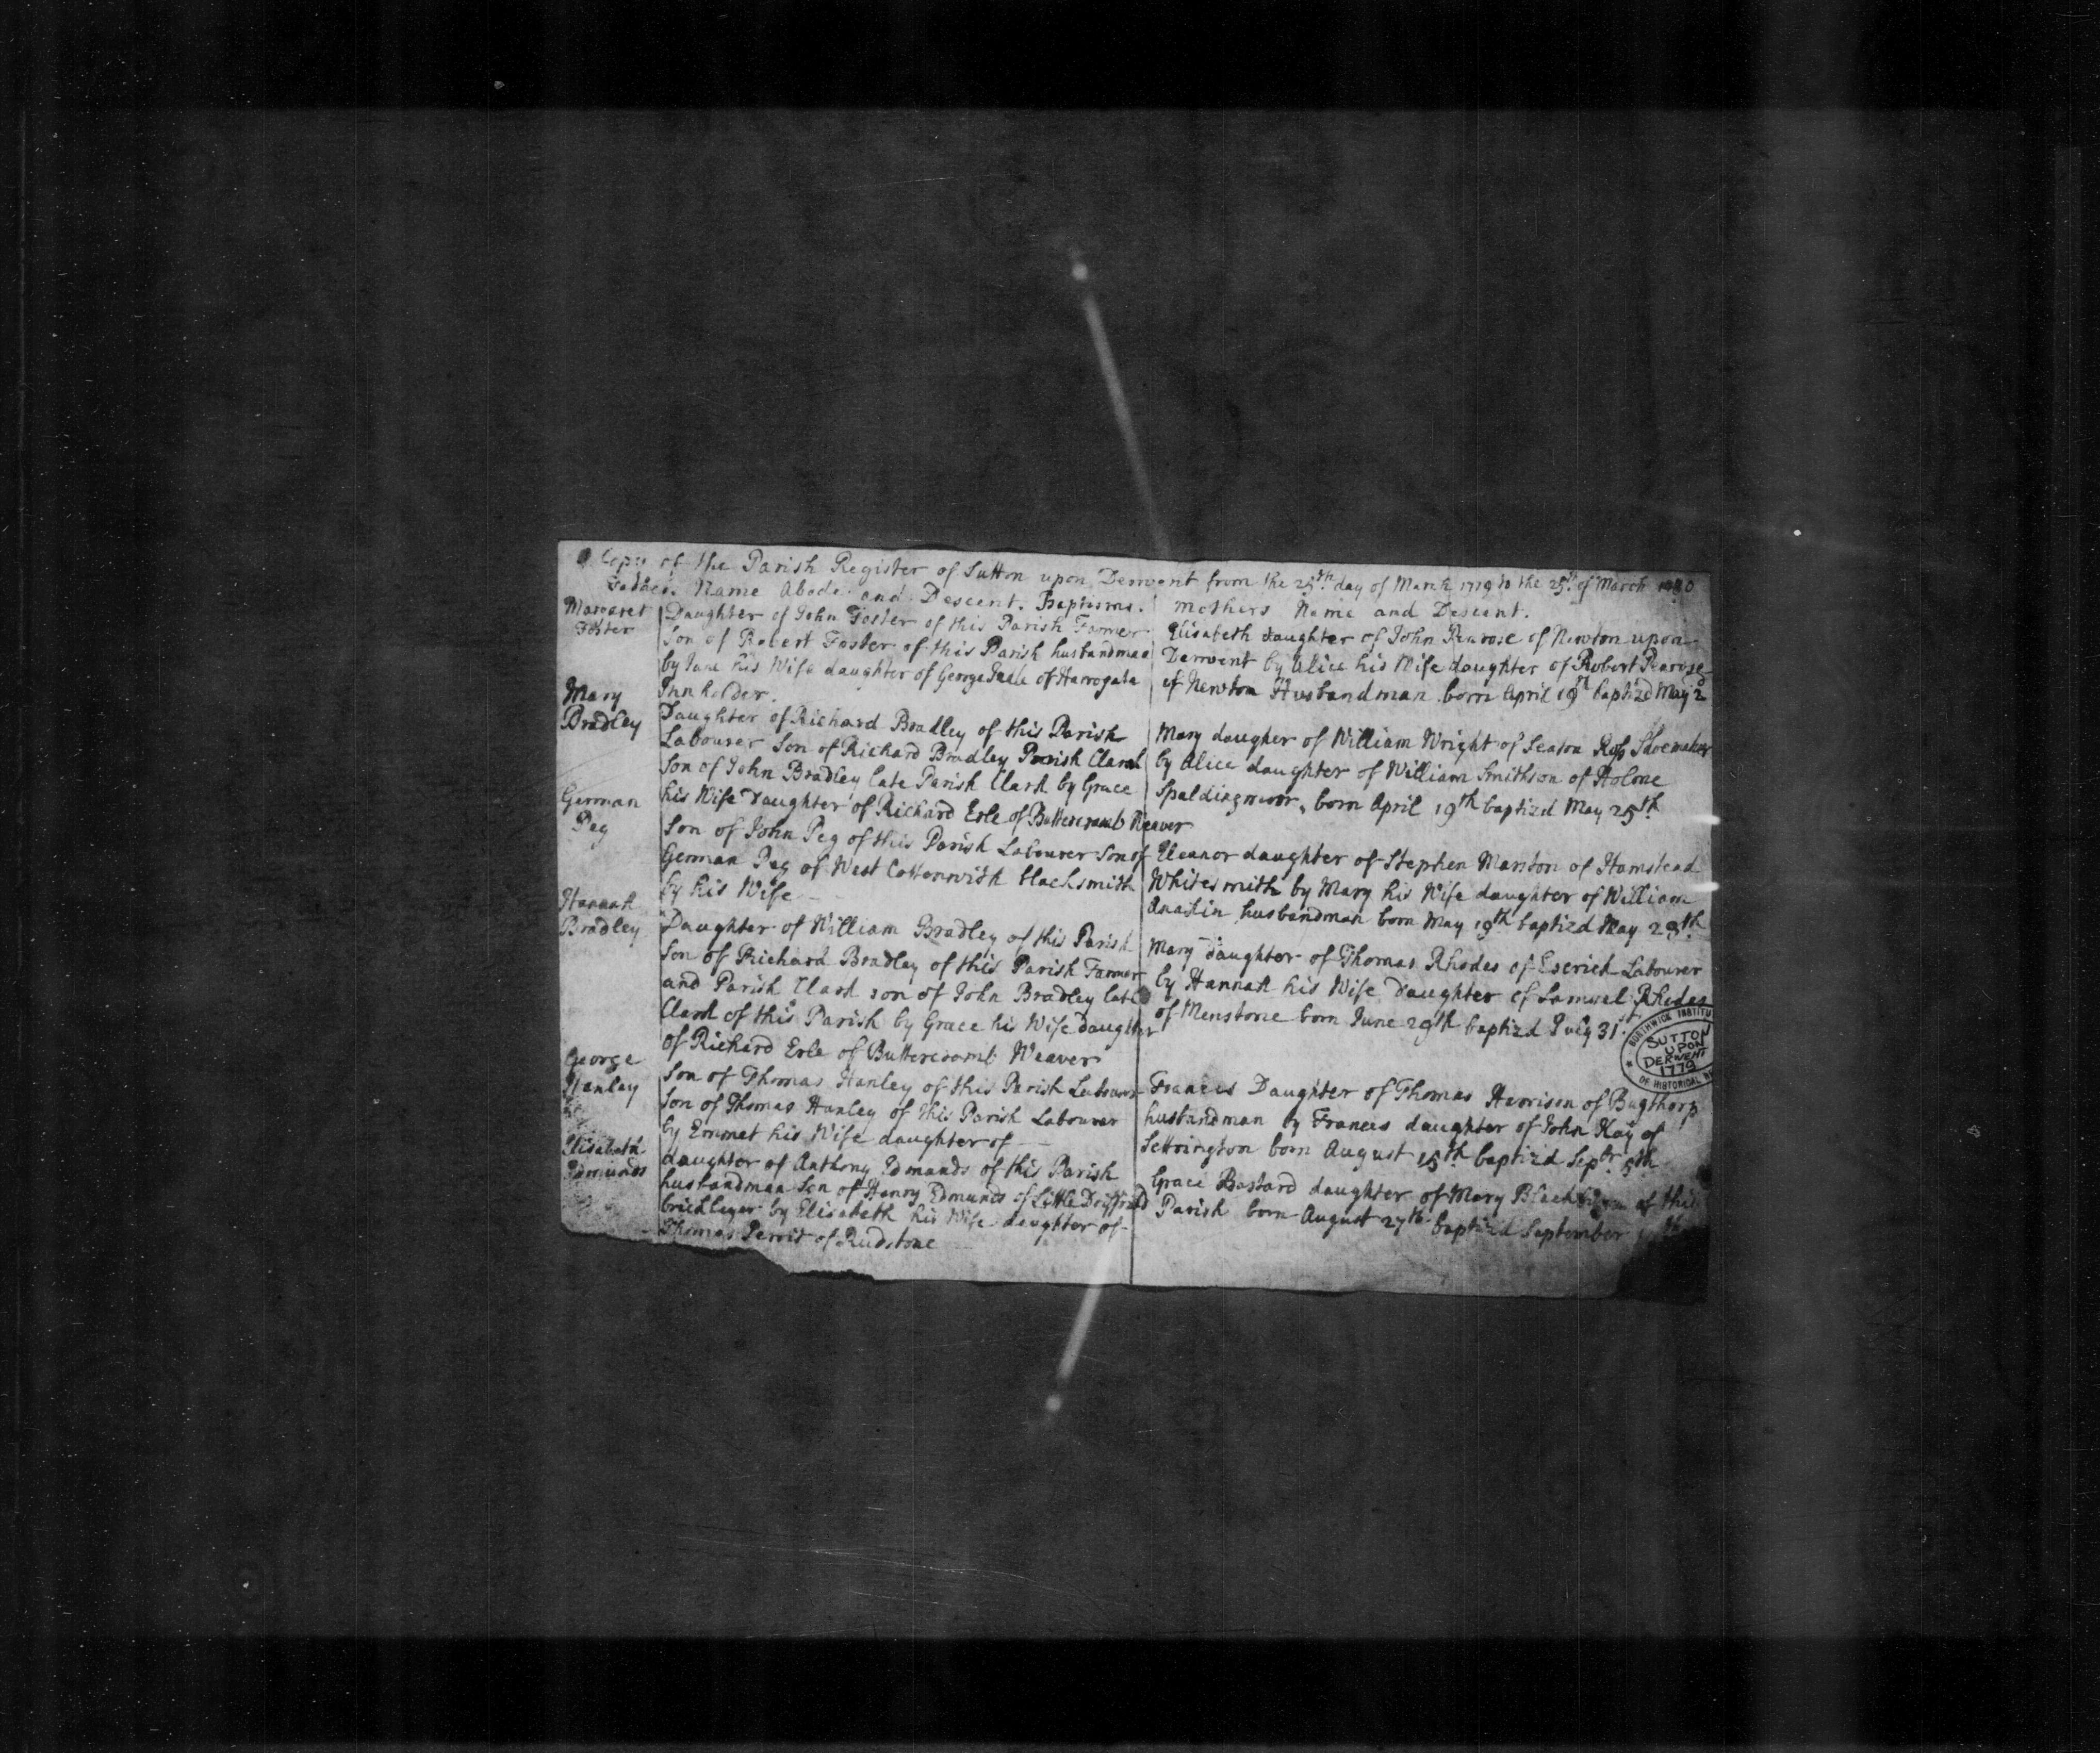 A Copy of the Parish Register of Sutton upon Derwent from the 25th day of March 1779 to the 25th of March 1780
Fathers Name Abode and Descent. Baptisms. Mothers Name and Descent.
Margaret
Foster
Daughter of John Foster of this Parish Farmer
Son of Robert Foster of this Parish husbandman
by Jane his Wife daughter of George of Harrogate
Innholder.
Elisabeth daughter of John Penrose of Newton upon
Derwent by Alice his Wife daughter of Robert Penrose
of Newton Husbandman born April 19th baptizd May 2d
Mary
Bradley
Daughter of Richard Bradley of this Parish
Labourer Son of Richard Bradley Parish Clark
Son of John Bradley late Parish Clark by Grace
his Wife Daughter of Richard Erle of Buttercramb Weaver
Mary daugher of William Wright of Seaton Ross Shoemaker
by Alice daughter of William Smithson of Holme
Spaldingmoor, born April 19th baptizd May 25th
German
Peg
Son of John Peg of this Parish Labourer Son of
German Peg of West Cottenwith blacksmith
by his Wife
Eleanor daughter of Stephen Marston of Hamstead
Whitesmith by Mary his Wife daughter of William
husbandman born May 19th baptizd May 28th
Hannah
Bradley
Daughter of William Bradley of this Parish
Son of Richard Bradley of this Parish Farmer
and Parish Clark son of John Bradley late
Clark of this Parish by Grace his Wife daughter
of Richard Erle of Buttercramb Weaver
Mary Daughter of Thomas Rhodes of Escrick Labourer
by Hannah his Wife Daughter of Samuel Rhodes
of Menstone born June 29th baptizd July 31st
BORTHWICK INSTITU
SUTTON
UPON
DERWENT
1779
OF HISTORICAL RE
George
Hanley
Son of Thomas Hanley of this Parish Labourer
Son of Thomas Hanley of this Parish Labourer
by Emmet his Wife daughter of
Frances Daughter of Thomas Harrison of Bugthorp
husbandman by Frances daughter of John Kay of
Settrington born August 15th baptizd Sepbr 5th
Elisabeth
Edmunds
daughter of Anthony Edmands of this Parish
husbandman Son of Henry Edmunds of Little Driffield
bricklayer by Elisabeth his Wife daughter of
Thomas of Rudstone
Grace Bastard daughter of Mary of this
Parish born August 27th baptizd September